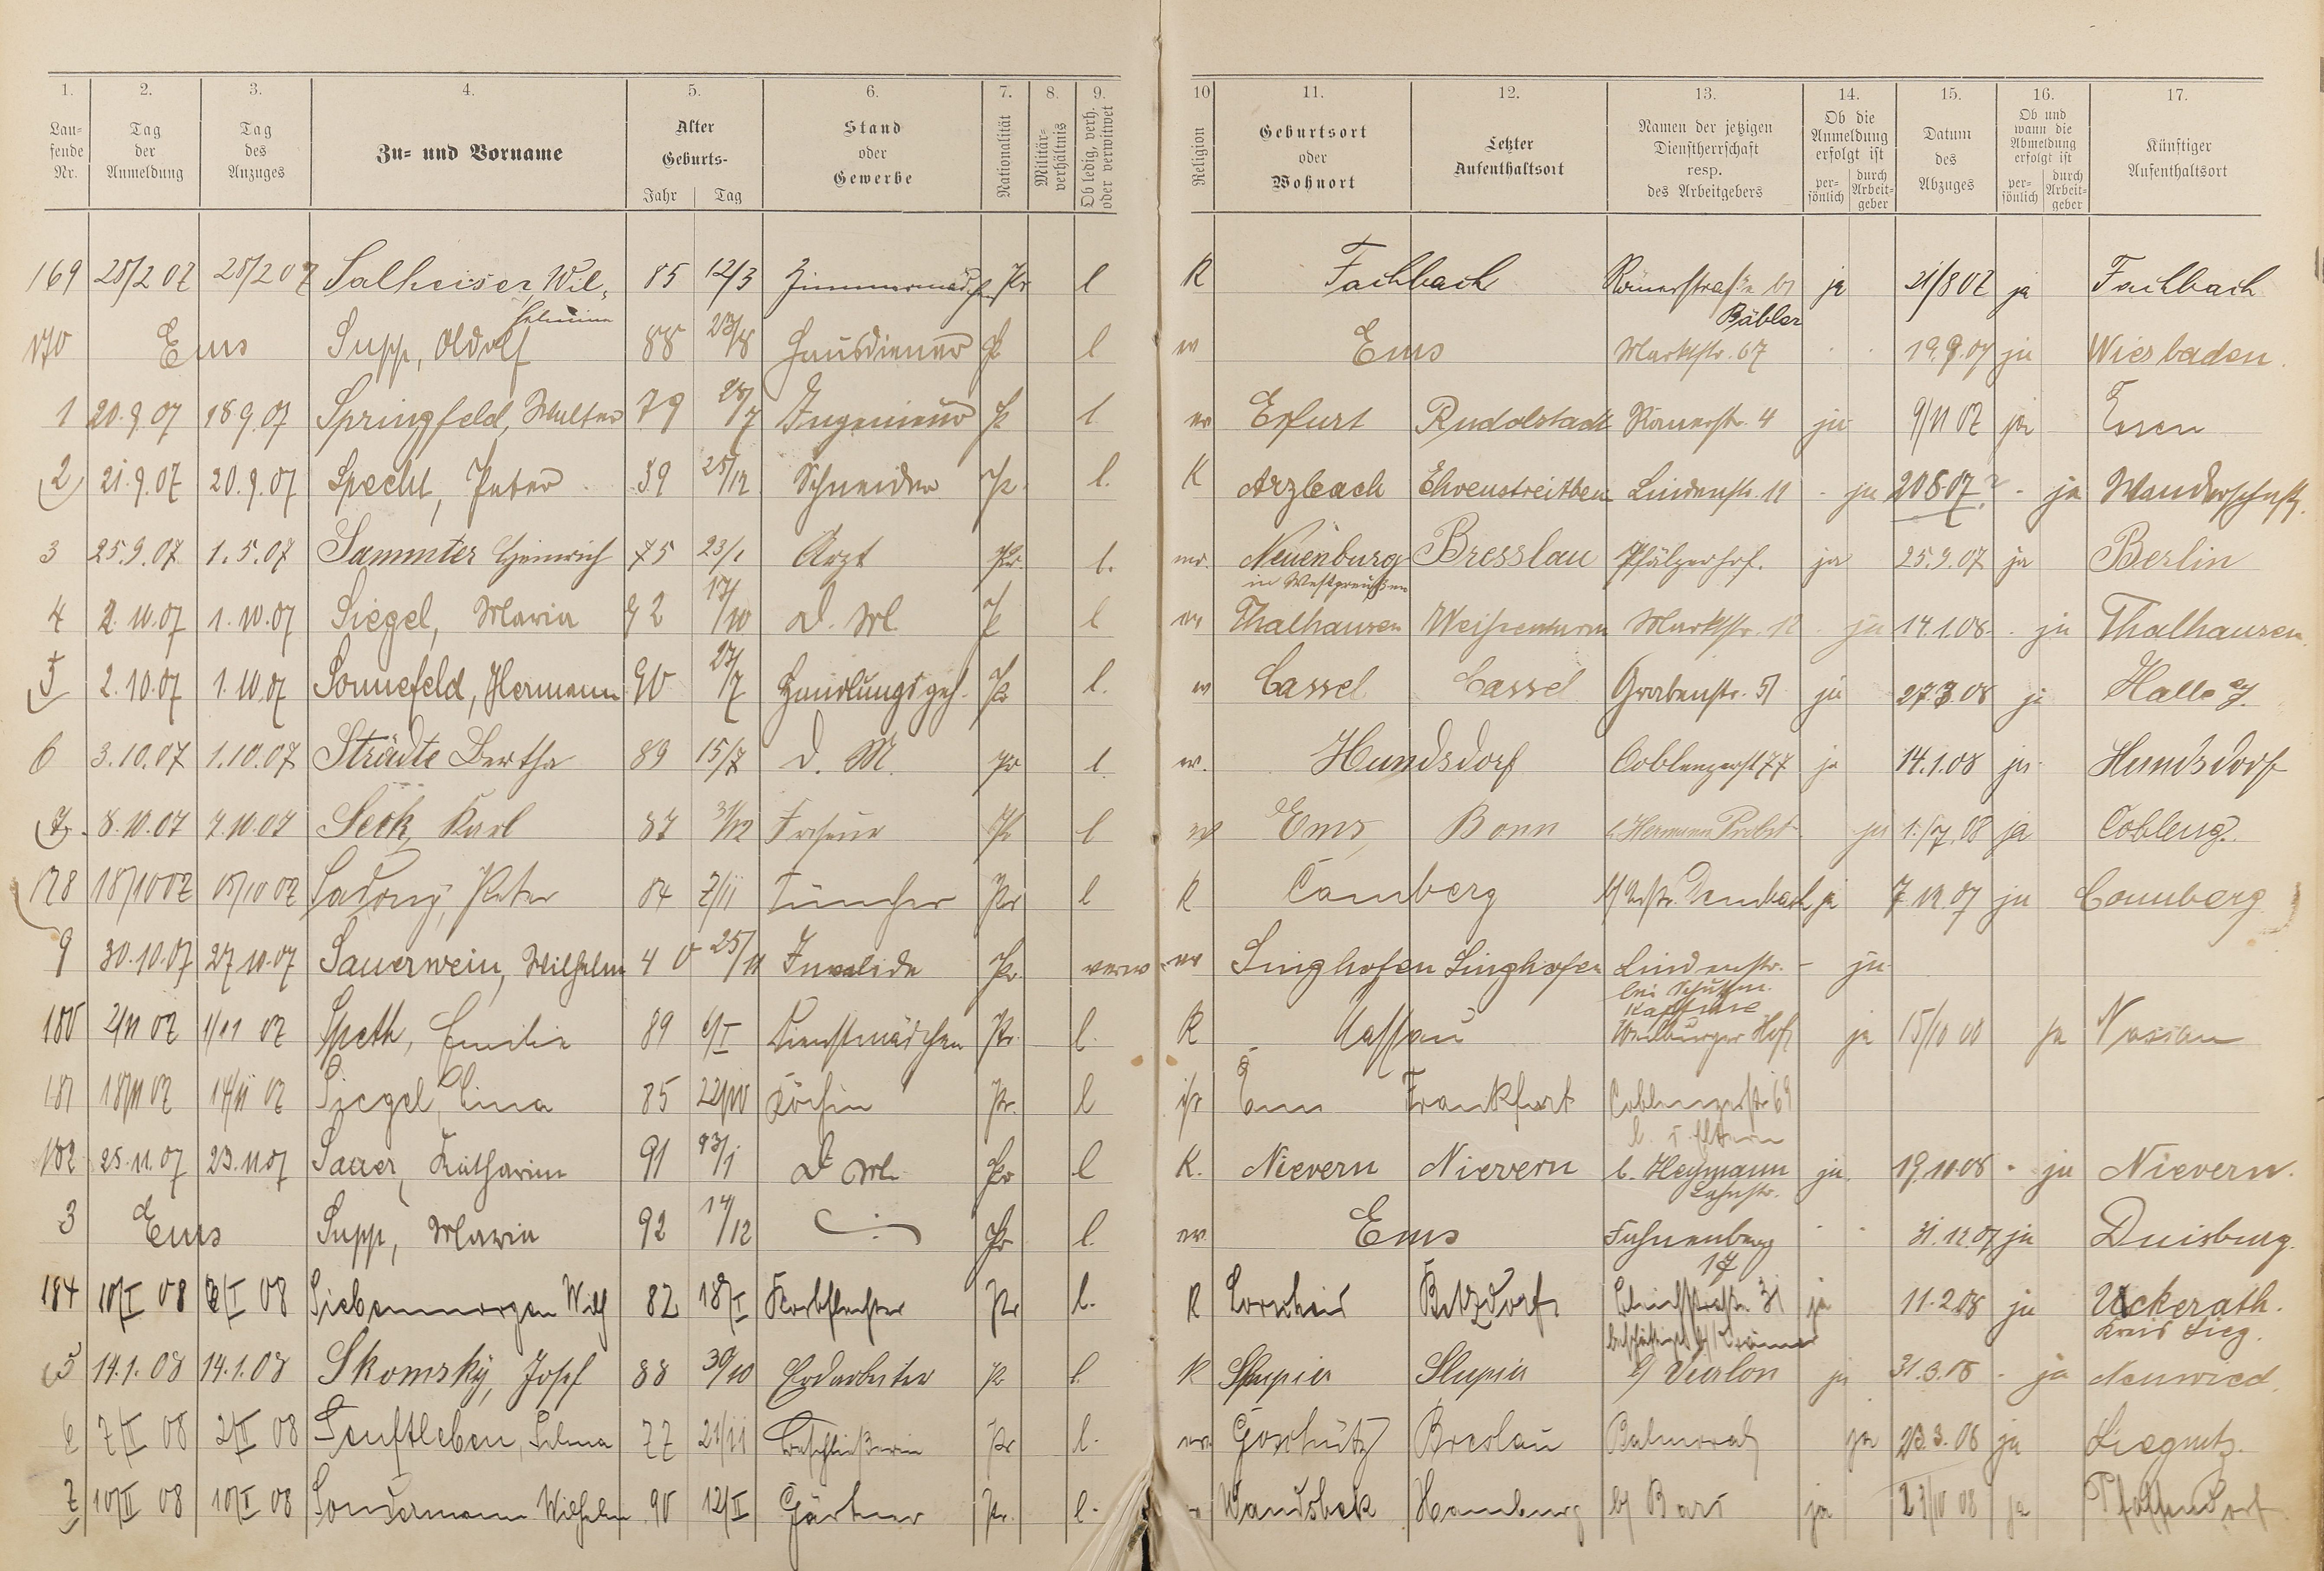 1. 2. 3. 4. 5. 6. 7. 8. 9. 10 11. 12. 13. 14. 15. 16. 17.
Lau-
fende
Nr.
Tag
der
Anmeldung
Tag
des
Anzuges
Zu- und Vorname
Alter
Geburts-
Jahr Tag
Stand
oder
Gewerbe
Nationalität
Militär-
verhältnis
Ob ledig, verh.
oder verwitwet
Religion
Geburtsort
oder
Wohnort
Letzter
Aufenthaltsort
Namen der jetzigen
Dienstherrschaft
resp.
des Arbeitgebers
Ob die
Anmeldung
erfolgt ist
per-
sönlich
durch
Arbeit-
geber
Datum
des
Abzuges
Ob und
wann die
Abmeldung
erfolgt ist
per-
sönlich
durch
Arbeit-
geber
Künftiger
Aufenthaltsort
169 28/2 07 28/2 07 Salheiser, Wil- 85 12/3 Zimmermädch. Pr l K Fachbach Römerstraße ja 21/8 07 ja Fachbach
helmine Bäbler
170 Ems Supp, Adolf 88 23/8 Hausdiener P l ev Ems Marktstr. 67 19.9.07 ja Wiesbaden.
1 20.9.07 18.9.07 Springfeld, Walter 79 28/7 Ingenieur P l. ev Erfurt Rudolstadt Römerstr. 4 ja 9/11 07 ja Essen
2 21.9.07 20.9.07 Specht, Peter 89 25/12 Schneider Pr. l. K Arzbach Ehrenbreitstein Lindenstr. 11 - ja 20.8.07? - ja Wanderschaft.
3 25.9.07 1.5.07 Sammter Heinrich 75 23/1 Arzt Pr. l. mos. Neuenburg Bresslau Pfälzerhof. ja 25.9.07 ja Berlin
in Westpreußen
4 2.10.07 1.10.07 Siegel, Maria 92 17/10 D. M. P l ev Thalhausen Weissenturm Marktstr. 12 - ja 14.1.08 - ja Thalhausen
5 2.10.07 1.10.07 Sonnefeld, Hermann 90 27/7 Handlungsgeh. Pr l. ev Cassel Cassel Grabenstr. 51 ja 27.3.08 ja Halle
6 3.10.07 1.10.07 Strädte Bertha 89 15/7 D. M. Pr l. ev. Hundsdorf Coblenzerst 77 ja 14.1.08 ja Hundsdorf
7. 8.10.07 7.10.07 Seck, Karl 87 31/12 Friseur Pr l ev Ems Bonn b. Hermann Probst ja 1./7.08 ja Coblenz.
178 18/10 07 15/10 07 Sadony, Peter 84 7/11 Tüncher Pr l K Camberg ja 7.12.07 ja Camberg
9 30.10.07 27.10.07 Sauerwein, Wilhelm 40 25/11 Invalide Pr. verw ev Singhofen Singhofen Lindenstr. - ja
bei Schuhm.
180 2/11 07 1/11 07 Speth, Emilie 89 6/I Dienstmädchen Pr. l. K Nassau Weilburger Hof ja 15/10 08 ja Nassau
181 18/11 07 14/11 07 Siegel, Lina 85 22/10 Köchin Pr. l isr Ems Frankfurt Coblenzerstr 69
b. d. Eltern
182 25.11.07 23.11.07 Sauer, Katharina 91 23/1 D M. Pr l K. Nievern Nievern b. Heymann ja. 19.10.08 - ja Nievern.
Lahnstr.
3 Ems Supp, Maria 92 14/12 Pr l. ev. Ems Fahnenberg 31.12.07 ja Duisburg.
17
184 10/I 08 6/I 08 Siebenmorgen Wilh 82 18/I Korbflechter Pr l. K Betzdorf 31 ja 11.2.08 ja Uckerath.
Kreis Sieg.
5 14.1.08 14.1.08 Skomsky, Josef 88 30/10 Erdarbeiter Pr l. K Slupia Slupia ja 31.3.08 - ja Neuwied.
6 7/II 08 2/II 08 Senftleben, Selma 77 21/11 Beschließerin Pr l. ev. Goschütz Breslau Balmoral ja 23.3.08 ja Liegnitz.
7 10/II 08 10/I 08 Sondermann Wilhelm 90 12/II Gärtner Pr. l. Wandsbek Hamburg ja 23/10 08 ja Pfaffendorf